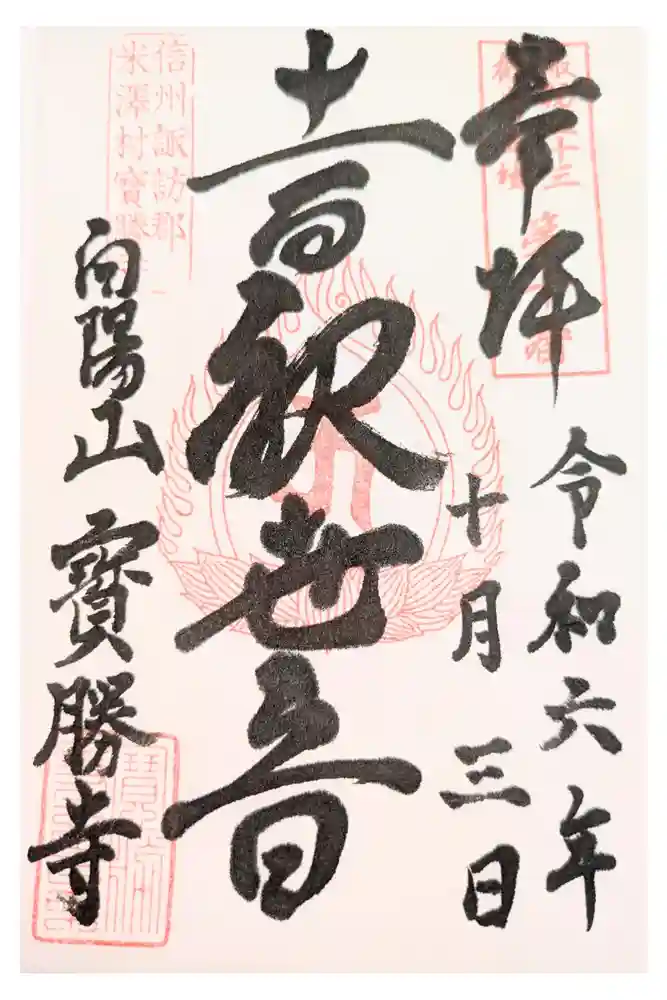 奉拝
令和六年
十月三日
十一面観世音
向陽山 寶勝寺
信州諏訪郡
米澤村寶勝寺